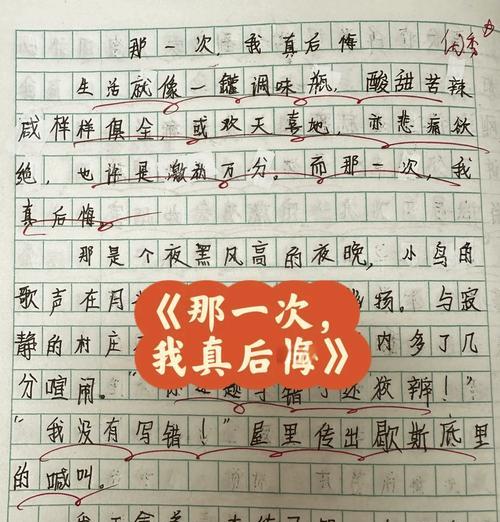 那一次，我真后悔
优秀
生活就像一罐调味瓶，酸甜苦辣
咸样样俱全，或欢天喜地，亦悲痛欲
绝，也许是激动万分。而那一次，我
真后悔。
那是个夜黑风高的夜晚，小鸟的
歌声在月 物。与寂
静的村庄 内多了几
分喧闹。 错了还狡辩！”
“我没有写错！”屋里传出歇斯底里
的喊叫。
《那一次，
我真后悔》